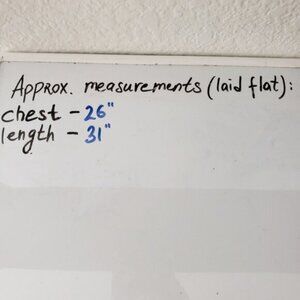 Approx. measurements (laid flat):
chest - 26"
length - 31"